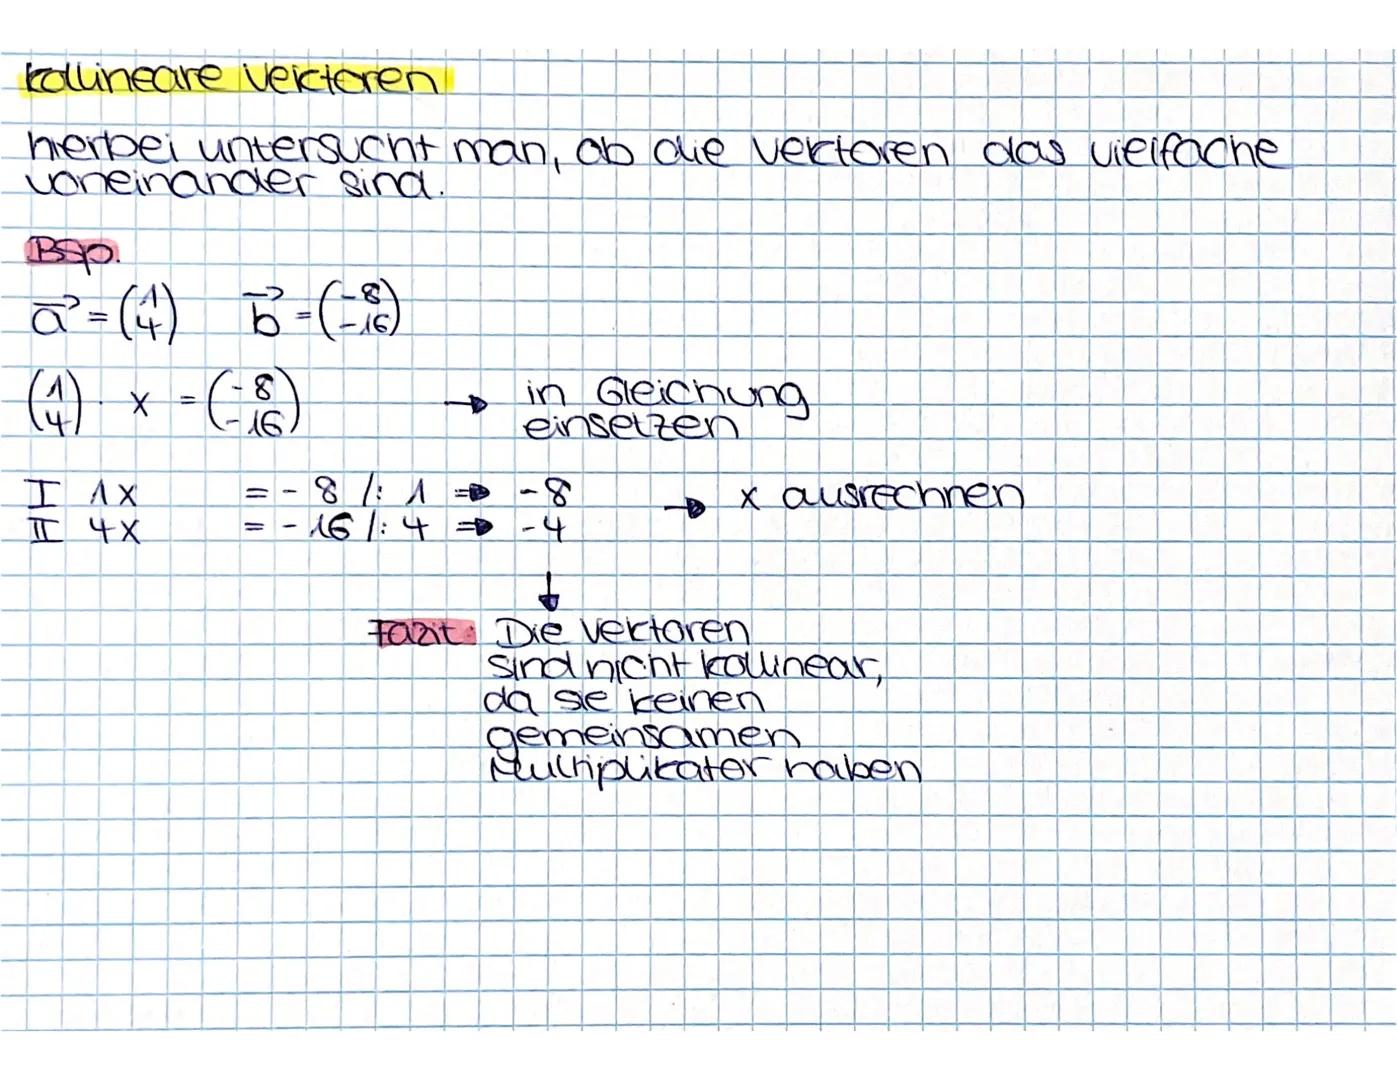 Kollineare Vektoren
hierbei untersucht man, ob die Vektoren das vielfache
voneinander sind.
Bsp.
a⃗ = (1 4) b⃗ = (-8 -16)
(1 4) · x = (-8 -16) → in Gleichung
einsetzen
I 1x = - 8 /: 1 ⇒ -8 → x ausrechnen
II 4x = - 16 /: 4 ⇒ -4
↓
Fazit: Die Vektoren
sind nicht kollinear,
da sie keinen
gemeinsamen
Multiplikator haben